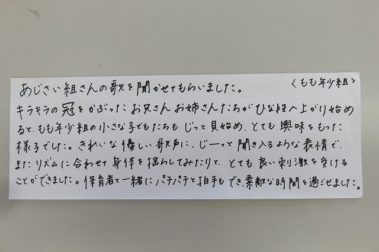 あじさい組さんの歌を聞かせてもらいました。 <もも年少組>
キラキラの冠をかぶったお兄さんお姉さんたちがひな段へ上がり始め
ると、もも年少組の小さな子どもたちもじっと見始め、とても興味をもった
様子でした。きれいな優しい歌声に、じーっと聞き入るような表情で、
またリズムに合わせて身体を揺らしてみたりと、とても良い刺激を受ける
ことができました。保育者と一緒にパチパチと拍手もでき、素敵な時間を過ごせました。